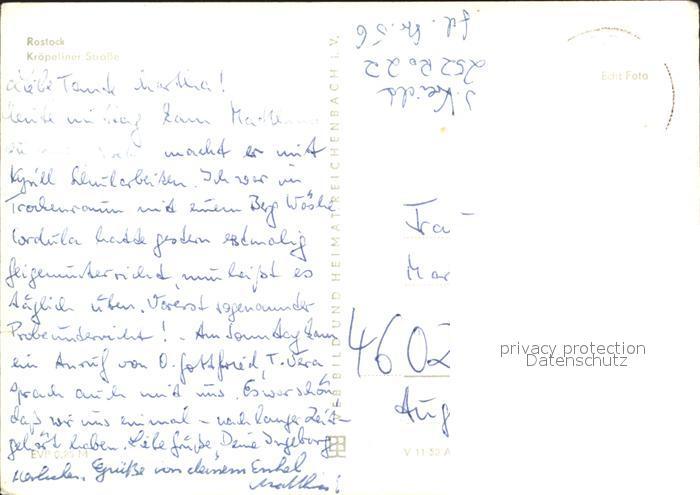 Rostock
Kröpeliner Straße
Liebe Tante Martina!
Heute mittag kam Matthias
macht er mit
Kyrill Schularbeiten. Ich war im
Trockenraum mit einem Berg Wäsche
Cordula hatte gestern erstmalig
Geigenunterricht, nun heißt es
täglich üben. Vorerst sogenannter
Probeunterricht! Am Sonntag kam
ein Anruf von O. Gottfried, T. Vera
sprach auch mit uns. Es war schön,
daß wir uns einmal - nach langer Zeit -
gehört haben. Liebe Grüße, Deine Ingeborg
Herzliche Grüße von deinem Enkel
Matthias!
EVP 0,20 M
VERBBILD UND HEIMAT REICHENBACH i. V.
V 11 52 A
Echt Foto
252 Ro 22
Frau
Mar
4602
Aug
privacy protection
Datenschutz